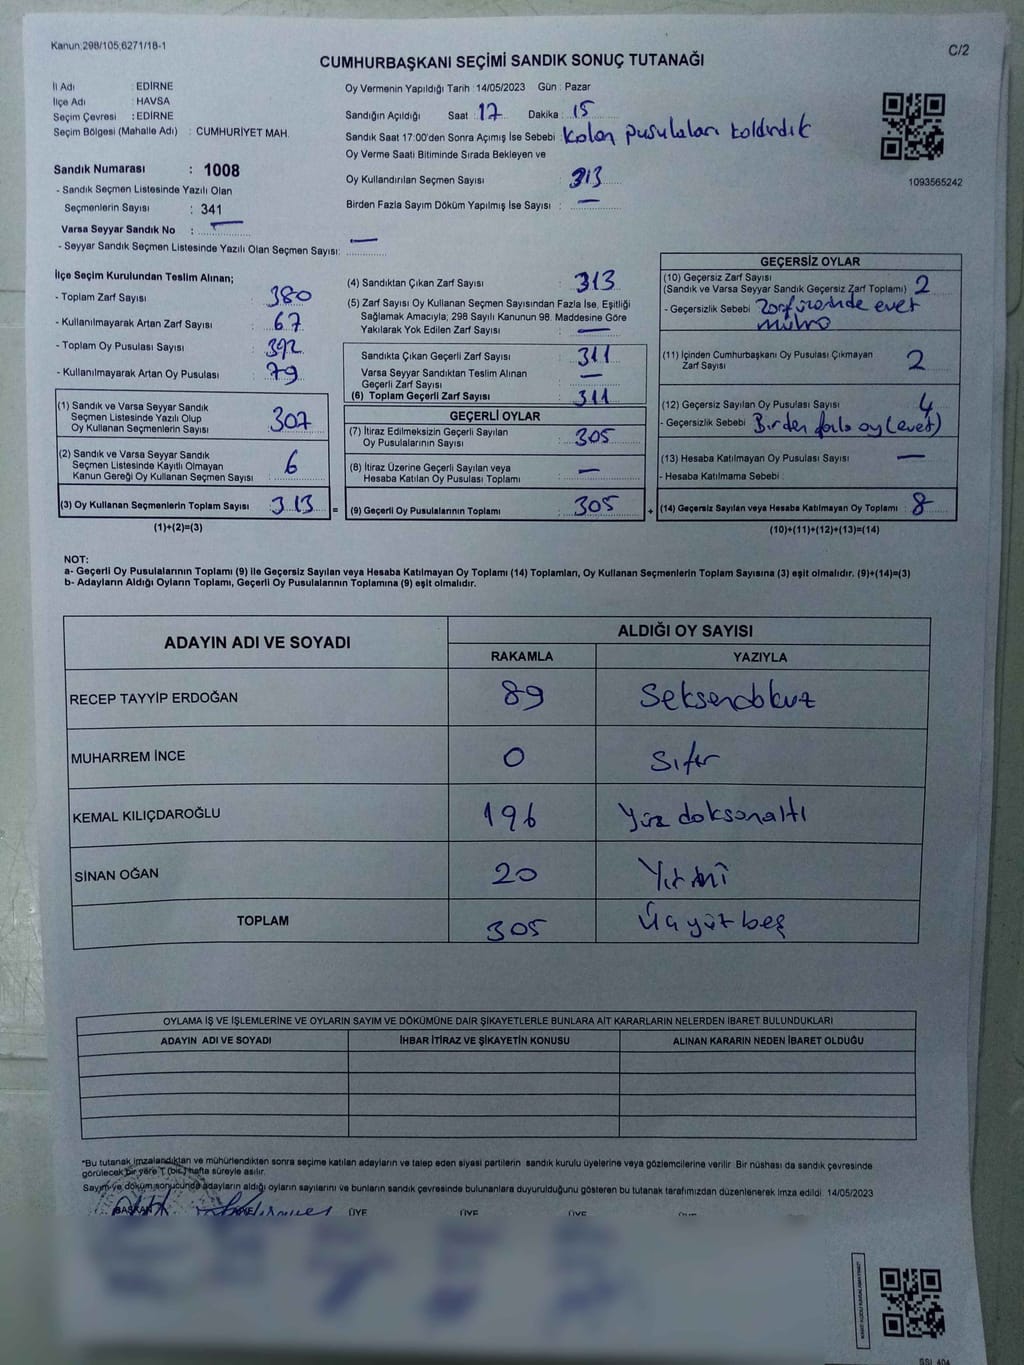 Kanun:298/105,6271/18-1
C/2
CUMHURBAŞKANI SEÇİMİ SANDIK SONUÇ TUTANAĞI
İl Adı : EDİRNE
İlçe Adı : HAVSA
Seçim Çevresi : EDİRNE
Seçim Bölgesi (Mahalle Adı) : CUMHURİYET MAH.
Sandık Numarası : 1008
- Sandık Seçmen Listesinde Yazılı Olan
Seçmenlerin Sayısı : 341
Varsa Seyyar Sandık No : —
- Seyyar Sandık Seçmen Listesinde Yazılı Olan Seçmen Sayısı: —
Oy Vermenin Yapıldığı Tarih : 14/05/2023 Gün : Pazar
Sandığın Açıldığı Saat : 17 Dakika : 15
Sandık Saat 17:00'den Sonra Açımış İse Sebebi : kalan pusulaları kaldırdık
Oy Verme Saati Bitiminde Sırada Bekleyen ve
Oy Kullandırılan Seçmen Sayısı : 313
Birden Fazla Sayım Döküm Yapılmış İse Sayısı : —
1093565242
İlçe Seçim Kurulundan Teslim Alınan;
- Toplam Zarf Sayısı : 380
- Kullanılmayarak Artan Zarf Sayısı : 67
- Toplam Oy Pusulası Sayısı : 392
- Kullanılmayarak Artan Oy Pusulası : 79
(1) Sandık ve Varsa Seyyar Sandık
Seçmen Listesinde Yazılı Olup
Oy Kullanan Seçmenlerin Sayısı : 307
(2) Sandık ve Varsa Seyyar Sandık
Seçmen Listesinde Kayıtlı Olmayan
Kanun Gereği Oy Kullanan Seçmen Sayısı : 6
(3) Oy Kullanan Seçmenlerin Toplam Sayısı : 313
(1)+(2)=(3)
(4) Sandıktan Çıkan Zarf Sayısı : 313
(5) Zarf Sayısı Oy Kullanan Seçmen Sayısından Fazla İse, Eşitliği
Sağlamak Amacıyla; 298 Sayılı Kanunun 98. Maddesine Göre
Yakılarak Yok Edilen Zarf Sayısı : —
Sandıkta Çıkan Geçerli Zarf Sayısı : 311
Varsa Seyyar Sandıktan Teslim Alınan
Geçerli Zarf Sayısı : —
(6) Toplam Geçerli Zarf Sayısı : 311
GEÇERLİ OYLAR
(7) İtiraz Edilmeksizin Geçerli Sayılan
Oy Pusulalarının Sayısı : 305
(8) İtiraz Üzerine Geçerli Sayılan veya
Hesaba Katılan Oy Pusulası Toplamı : —
= (9) Geçerli Oy Pusulalarının Toplamı : 305
GEÇERSİZ OYLAR
(10) Geçersiz Zarf Sayısı
(Sandık ve Varsa Seyyar Sandık Geçersiz Zarf Toplamı) : 2
- Geçersizlik Sebebi : Zarf üzerinde evet
mührü
(11) İçinden Cumhurbaşkanı Oy Pusulası Çıkmayan
Zarf Sayısı : 2
(12) Geçersiz Sayılan Oy Pusulası Sayısı : 4
- Geçersizlik Sebebi : Birden fazla oy (evet)
(13) Hesaba Katılmayan Oy Pusulası Sayısı : —
- Hesaba Katılmama Sebebi :
+ (14) Geçersiz Sayılan veya Hesaba Katılmayan Oy Toplamı : 8
(10)+(11)+(12)+(13)=(14)
NOT:
a- Geçerli Oy Pusulalarının Toplamı (9) ile Geçersiz Sayılan veya Hesaba Katılmayan Oy Toplamı (14) Toplamları, Oy Kullanan Seçmenlerin Toplam Sayısına (3) eşit olmalıdır. (9)+(14)=(3)
b- Adayların Aldığı Oyların Toplamı, Geçerli Oy Pusulalarının Toplamına (9) eşit olmalıdır.
ADAYIN ADI VE SOYADI
ALDIĞI OY SAYISI
RAKAMLA YAZIYLA
RECEP TAYYİP ERDOĞAN 89 Seksendokuz
MUHARREM İNCE 0 Sıfır
KEMAL KILIÇDAROĞLU 196 Yüz doksanaltı
SİNAN OĞAN 20 Yirmi
TOPLAM 305 Üçyüzbeş
OYLAMA İŞ VE İŞLEMLERİNE VE OYLARIN SAYIM VE DÖKÜMÜNE DAİR ŞİKAYETLERLE BUNLARA AİT KARARLARIN NELERDEN İBARET BULUNDUKLARI
ADAYIN ADI VE SOYADI İHBAR İTİRAZ VE ŞİKAYETİN KONUSU ALINAN KARARIN NEDEN İBARET OLDUĞU
*Bu tutanak imzalandıktan ve mühürlendikten sonra seçime katılan adayların ve talep eden siyasi partilerin sandık kurulu üyelerine veya gözlemcilerine verilir. Bir nüshası da sandık çevresinde
görülecek bir yere 1 (bir) hafta süreyle asılır.
Sayım ve döküm sonucunda adayların aldığı oyların sayılarını ve bunların sandık çevresinde bulunanlara duyurulduğunu gösteren bu tutanak tarafımızdan düzenlenerek imza edildi. 14/05/2023
BAŞKAN ÜYE ÜYE ÜYE